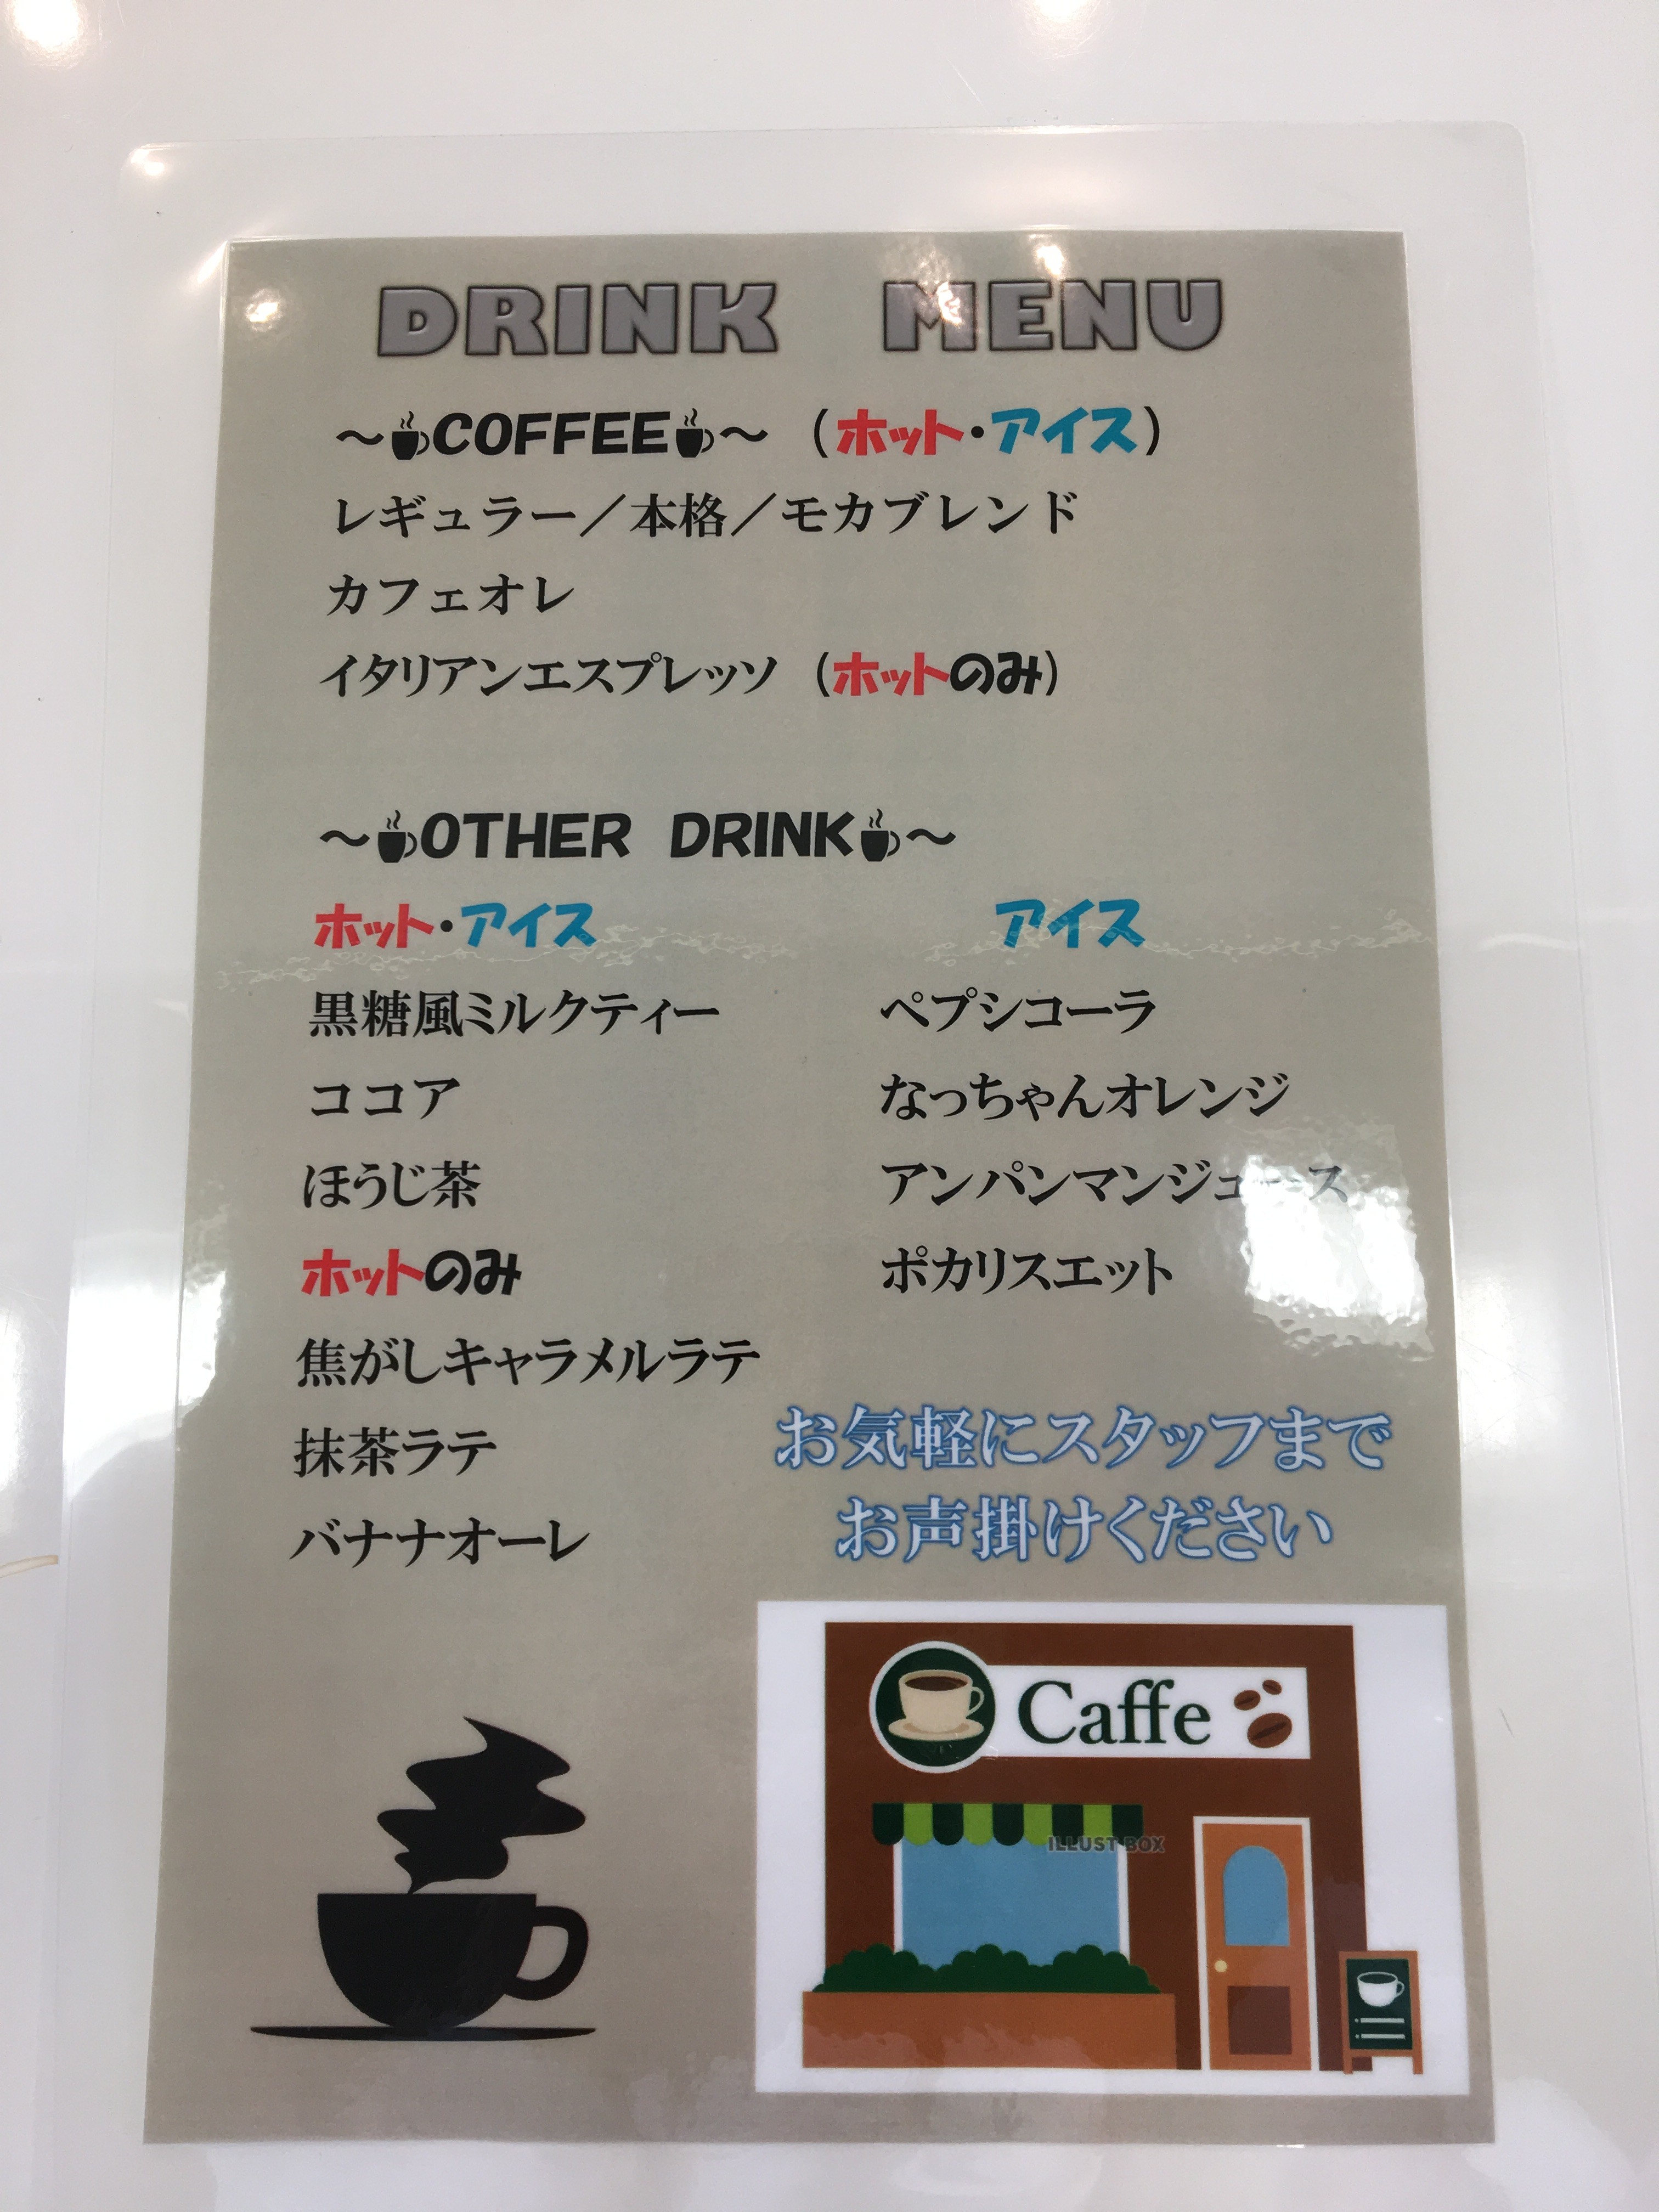 DRINK MENU
～COFFEE～ （ホット・アイス）
レギュラー／本格／モカブレンド
カフェオレ
イタリアンエスプレッソ （ホットのみ）
～OTHER DRINK～
ホット・アイス
黒糖風ミルクティー
ココア
ほうじ茶
ホットのみ
焦がしキャラメルラテ
抹茶ラテ
バナナオーレ
アイス
ペプシコーラ
なっちゃんオレンジ
アンパンマンジュース
ポカリスエット
お気軽にスタッフまで
お声掛けください
Caffe
ILLUST BOX